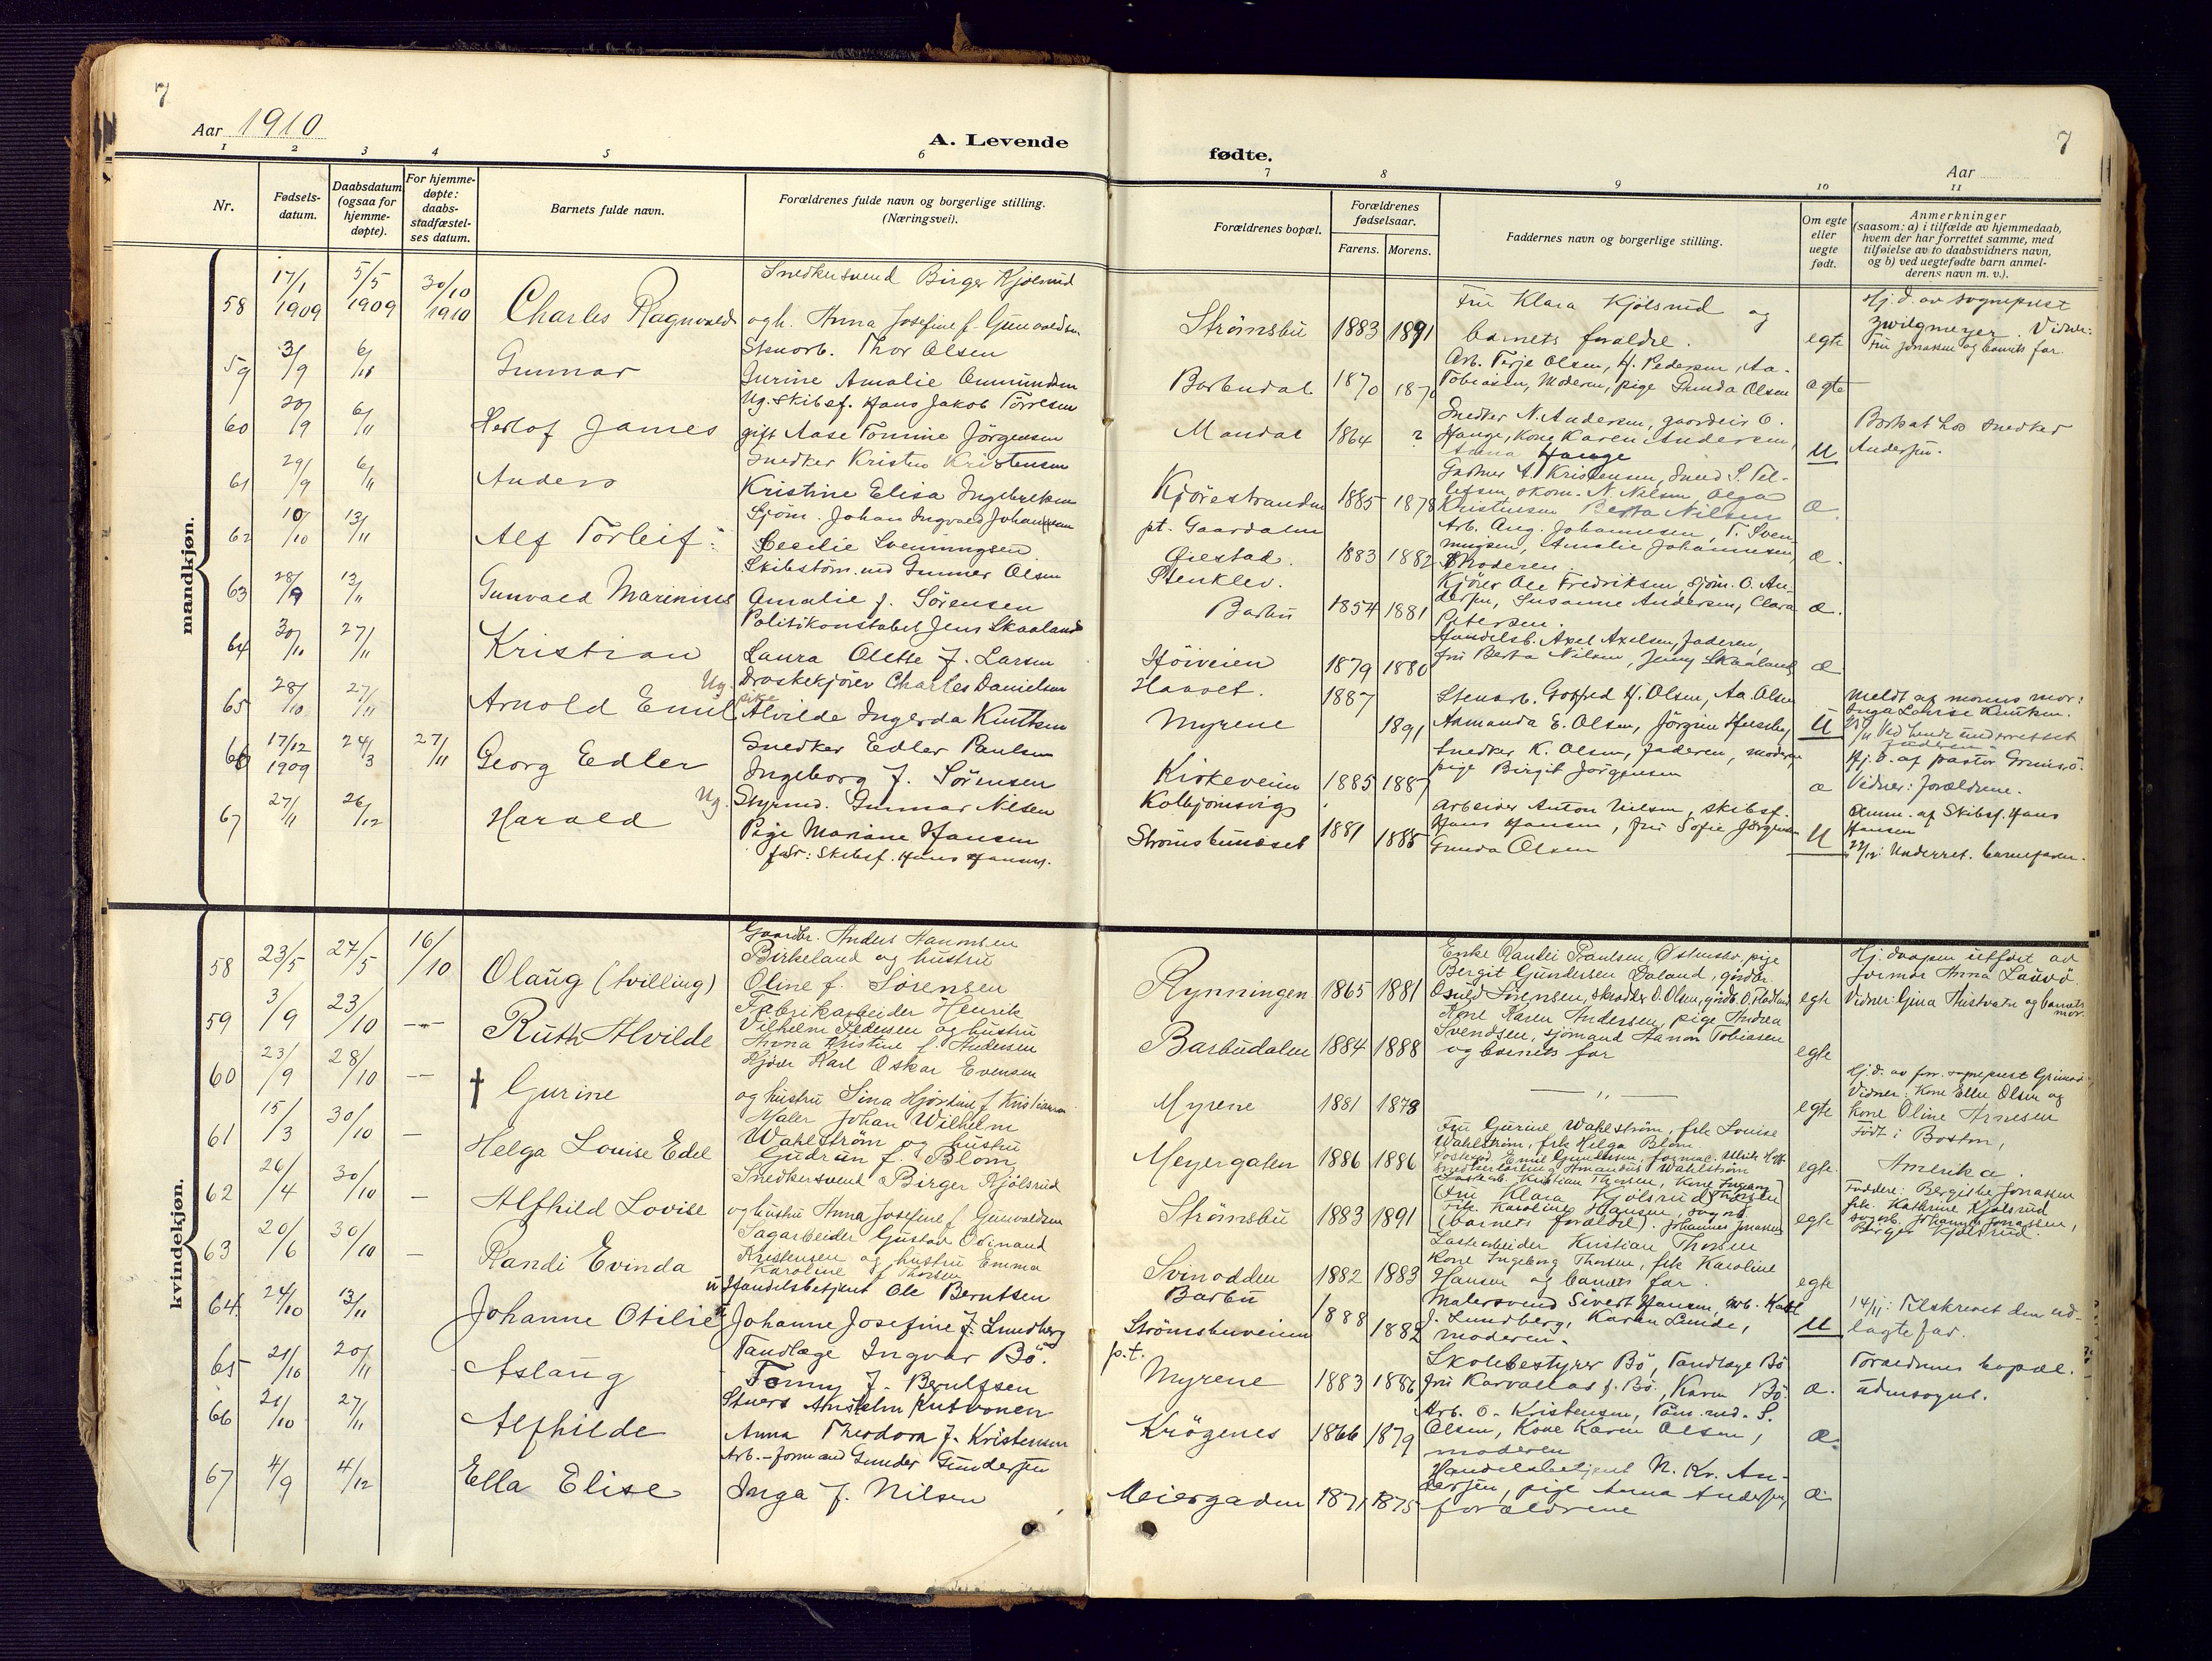 7
Aar 1910
A. Levende
fødte.
7
Aar
1 2 3 4 5 6 7 8 9 10 11
Nr.
Fødsels-
datum.
Daabsdatum
(ogsaa for
hjemme-
døpte).
For hjemme-
døpte:
daabs-
stadfæstel-
ses datum.
Barnets fulde navn.
Forældrenes fulde navn og borgerlige stilling.
(Næringsvei).
Forældrenes bopæl.
Forældrenes
fødselsaar.
Farens. Morens.
Faddernes navn og borgerlige stilling.
Om egte
eller
uegte
født.
Anmerkninger
(saasom: a) i tilfælde av hjemmedaab,
hvem der har forrettet samme, med
tilføielse av to daabsvidners navn,
og b) ved uegtefødte barn anmel-
derens navn m. v.).
mandkjøn.
58 17/1 1909 5/5 1909 30/10 1910 Charles Ragnvald
Snedkersvend Birger Kjölsrud
og h. Anna Josefine f. Gunvaldsen
Strømsbu 1883 1891
Fru Klara Kjölsrud og
barnets foraldre.
egte
Hj. d. av sogneprest
Zwilgmeyer. Vidner:
Fru Jonassen og barnets far.
59 3/9 6/11 Gunnar
Stenarb. Thor Olsen
Gurine Amalie Anmundsen
Barbudal 1870 1870
Arb. Terje Olsen, H. Pedersen, Aa.
Tobiasen, Moderen, pige Gunda Olsen
egte
60 20/9 6/11 Herlof James
Ug. Skibsf. Hans Jakob Törresen
gift Aase Tomine Jörgensen
Mandal 1864 ?
Snedker N. Andersen, gaardeir O.
Hauge, Kone Karen Andersen,
Anna Hauge
U
Bortsat hos snedker
Andersen.
61 29/9 6/11 Anders
Snedker Kristen Kristensen
Kristine Elisa Ingebretsen
Kjörestranden 1885 1878
pt. Gaardalen
Gartner A. Kristensen, Sned S. Tel-
lefsen, økom. N. Nilsen, Olga
Kristensen Berta Nilsen
æ.
62 10/10 13/11 Alf Torleif
Sjöm. Johan Ingvald Johansen
Cecilie Sveningsen
Øiestad. 1883 1882
Stenklev.
Arb. Aug. Johannesen, T. Sven-
ningsen, Amalie Johannesen,
Moderen.
æ.
63 28/9 13/11 Gunvald Marinius
Skibstöm.md Gunner Olsen
Amalie f. Sörensen
Barbu 1854 1881
Kjörer Ole Fredriksen, Sjöm. O. An-
dersen, Susanne Andersen, Clara
Petersen.
æ.
64 30/10 27/11 Kristian
Politikonstabel Jens Skaaland
Laura Olette f. Larsen
Høiveien 1879 1880
Handelsb. Axel Axelsen, faderen,
Fru Berta Nilsen, Jenny Skaaland
æ
65 28/10 27/11 Arnold Emil
Ug. Droskekjörer Charles Danielsen
pike Alvilde Ingerda Knutsen
Haavet. 1887
Myrene 1891
Stenarb. Gotfred H. Olsen, Aa. Olsen
Amanda E. Olsen, Jörgine Heseby
U
Meldt af morens mor:
Inga Lovise Knutsen.
66 17/12 1909 24/3 27/11 Georg Edler
Snedker Edler Paulsen
Ingeborg f. Sörensen
Kirkeveien 1885 1887
Snedker K. Olsen, faderen, moderen
pige Birgit Jörgensen
æ
Hj. d. af pastor Grimsö.
Vidner: forældrene.
67 27/11 26/12 Harald
Ug. Styrmd. Gunnar Nilsen
Pige Mariane Hansen
far: Skibsf. Hans Hansen.
Kolbjørnsvig 1881
Strömsbuneset 1885
Arbeider Anton Nilsen, skibsf.
Hans Hansen, Fru Sofie Jörgensen
Gunda Olsen
U
Anm. af Skibsf. Hans
Hansen
22/12: Underret. barnefaren.
kvindekjøn.
58 23/5 27/5 16/10 Olaug (tvilling)
Gaardbr. Anders Hanonsen
Birkeland og hustru
Oline f. Sörensen
Rynningen 1865 1881
Enke Randei Paulsen, Østensbu, pige
Bergit Gundersen Daland, gårdbr.
Osuld Sörensen, skrædder O. Olsen, gårdb. O. Rødland
egte
Hj. daapen utført av
formor Anna Lauvö
Vidner Gina Hustvatn og barnets
mor.
59 3/9 23/10 — Ruth Alvilde
Fabrikarbeider Henrik
Vilhelm Pedersen og hustru
Anna Kristine f. Andersen
Barbudalen 1884 1888
Kone Karen Andersen, pige Andrea
Svendsen, sjömand Aanon Tobiasen
og barnets far
egte
60 23/9 28/10 — † Gurine
Kjörer Karl Oskar Evensen
og hustru Sina Hjördine f. Kristiansen
Myrene 1881 1878
— „ —
egte
Hj. d. av forr. sogneprest Grimsö
Vidner: Kone Ellen Olsen og
Kone Oline Arnesen
61 15/3 30/10 — Helga Louise Edel
Maler Johan Wilhelm
Wahlström og hustru
Gudrun f. Blom
Meyergaten 1886 1886
Fru Gurine Wahlström, frk Louise
Wahlström, frk Helga Blom
Postexp. Emil Gundersen, formac. Ulrik Hoff
Snedkerlærling Amandus Wahlström
egte.
Født i Boston,
Amerika.
62 26/4 30/10 — Alfhild Lovise
Snedkersvend Birger Kjölsrud
og hustru Anna Josefine f Gunvaldsen
Strømsbu 1883 1891
(Fru Klara Kjölsrud
Frk. Karoline Hansen, sagarb.
(barnets forældre). Johannes Jonassen
egte
Faddere: Bergithe Jonassen
frk. Kathrine Kjölsrud
sagarb. Johannes Jonassen,
Birger Kjölsrud.
63 20/6 30/10 — Randi Evinda
Sagarbeider Gustav Odinand
Kristensen og hustru Emma
Karoline f Thorsen
Svinodden 1882 1883
Lastearbeider Kristian Thorsen
Kone Ingeborg Thorsen, frk Karoline
Hansen og barnets far.
egte
64 24/10 13/11 Johanne Otilie
u Handelsbetjent Ole Berntsen
Johanne Josefine f. Lundberg
Barbu 1888
Strömsbuveien 1882
Malersvend Sivert Hansen, arb. Karl
J. Lundberg, Karen Lunde,
moderen.
U
14/11: Tilskrevet den ud-
lagte far.
65 21/10 20/11 Aslaug
Tandlæge Ingvar Bö.
Fanny f. Berulfsen
p.t.
Myrene 1883 1886
Skolebestyrer Bö, Tandlæge Bö
Fru Karvallas f. Bö, Karen Bö
æ.
Foraldrenes bopæl.
udensogns.
66 21/10 27/11 Alfhilde
Stuert Anshelm Rutvonen
Anna Theodora f. Kristensen
Krögenes 1866 1879
Arb. O. Kristensen, Töm.md. S.
Olsen, Kone Karen Olsen,
moderen
æ.
67 4/9 4/12 Ella Elise
Arb.-formand Gunder Gundersen
Inga f. Nilsen
Meiergaden 1871 1875
Handelsbetjent N. Kr. An-
dersen, pige Anna Andersen,
forældrene
æ.